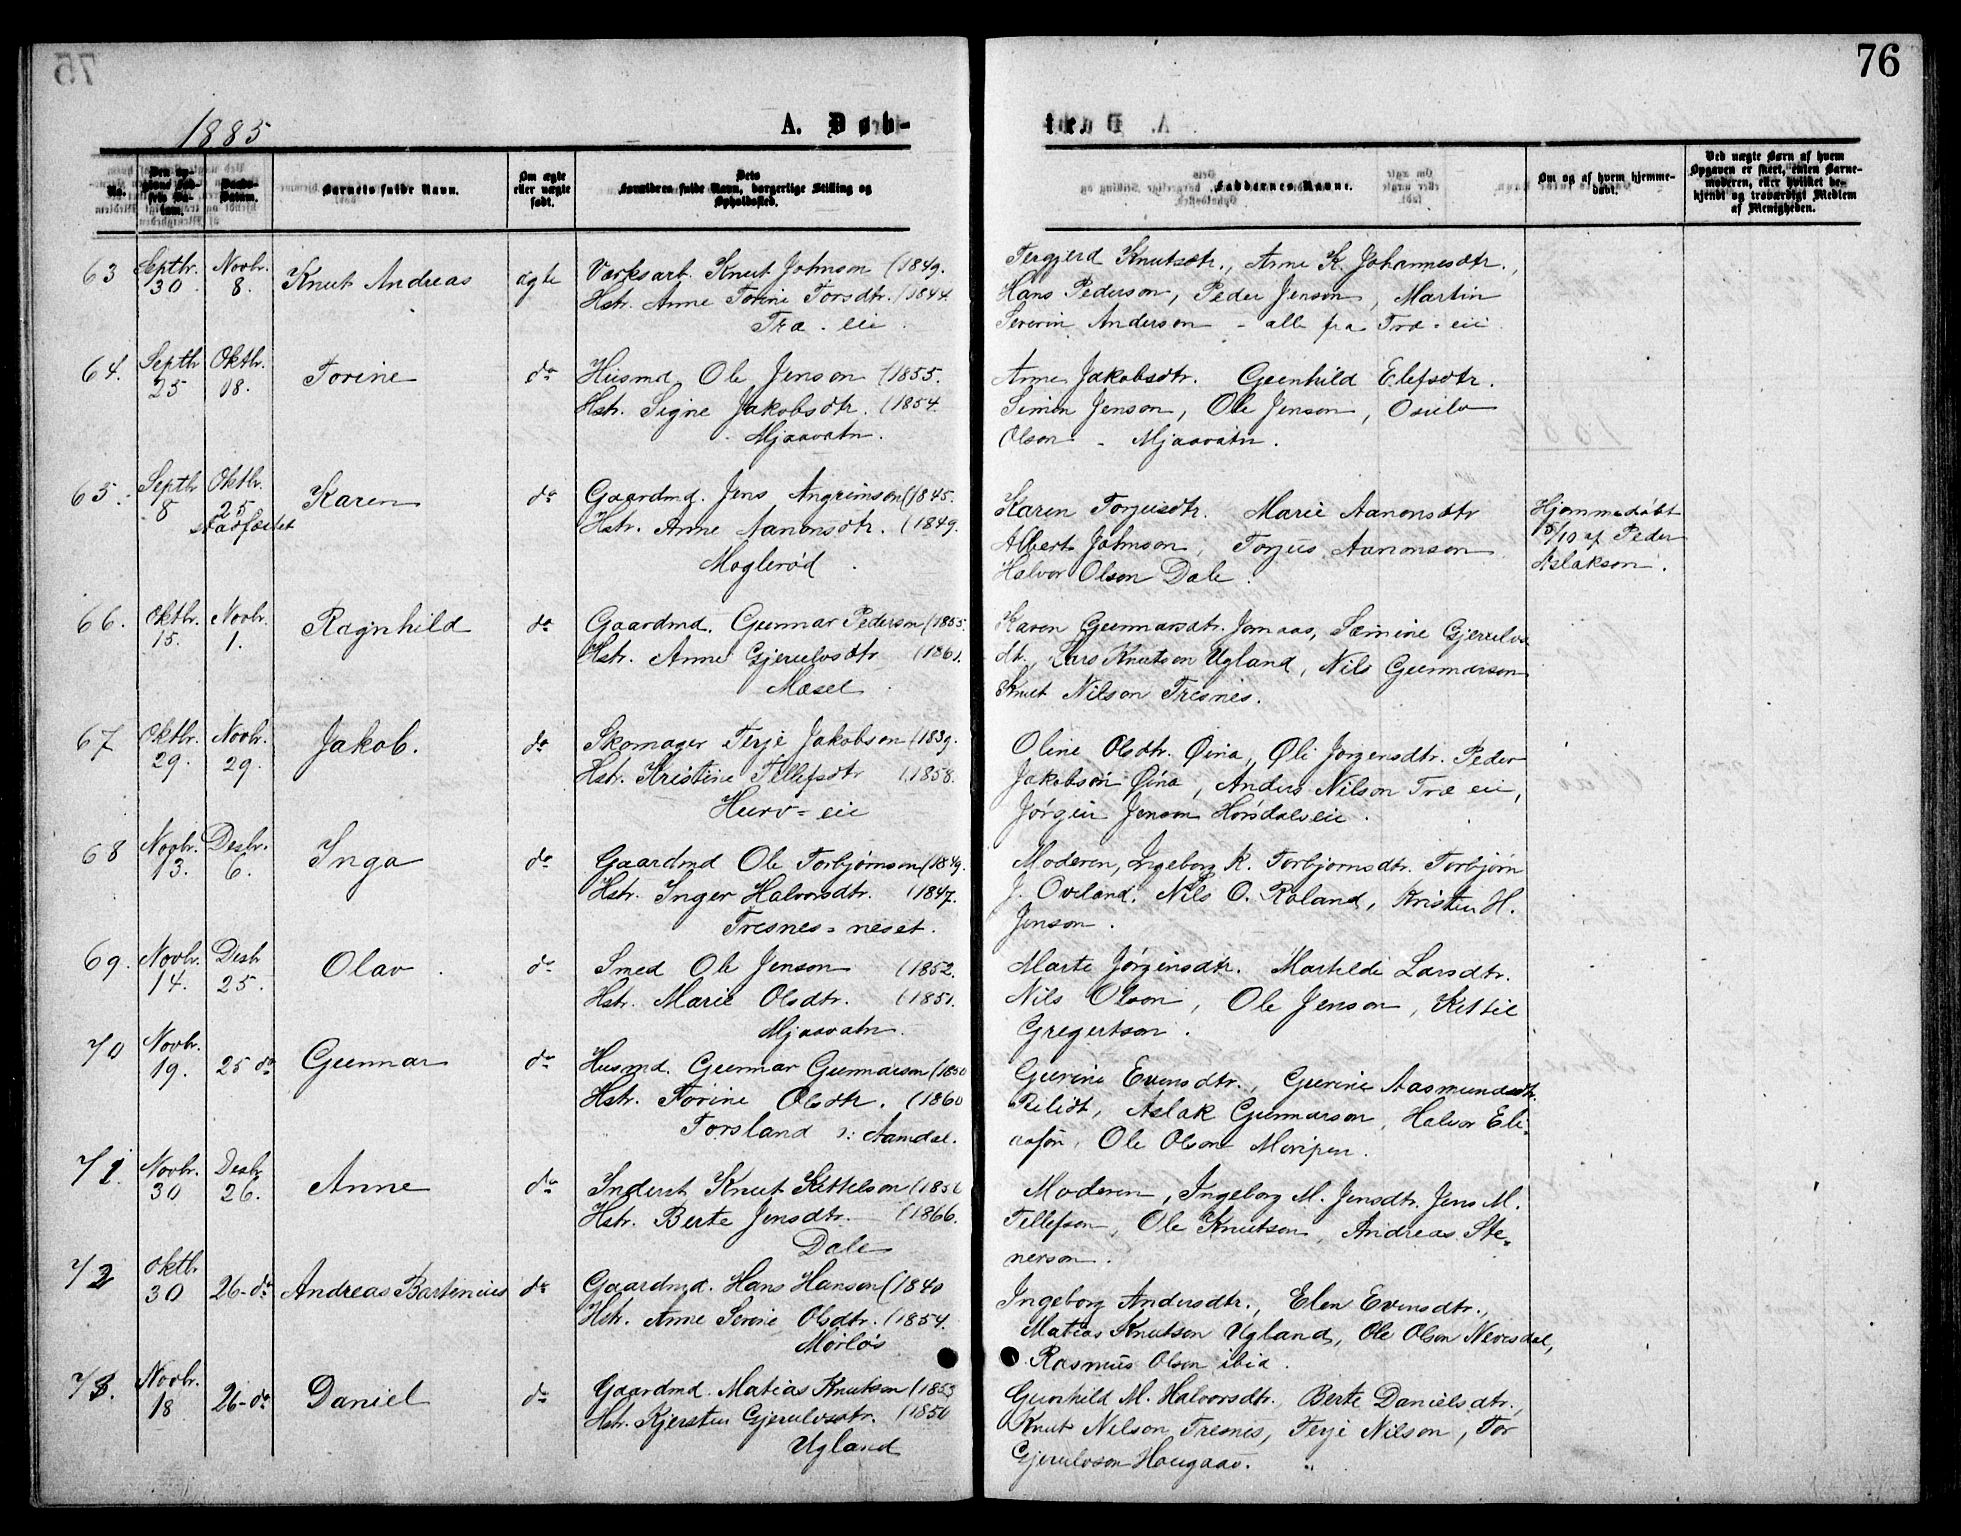 76
1885
A. Døb-
te.
No.
Den opgivne Fødsels Datum.
Daabs-Datum.
Barnets fulde Navn.
Om ægte eller uægte født.
Dets Forældres fulde Navn, borgerlige Stilling og Opholdssted.
Faddernes Navne.
Om og af hvem hjemmedøbt.
Ved uægte Børn af hvem Opgaven er skeet, enten Barnemoderen, eller hvilket bekjendt og troværdigt Medlem af Menigheden.
63 Septbr. 30 Novbr. 8. Knut Andreas ægte Værksarb. Knut Johnson (1849.
Hstr. Anne Torine Torsdtr. (1844.
Træ-eie
Tergjerd Knutsdtr., Anne K. Johannesdtr.,
Hans Pederson, Peder Jenson, Martin
Severin Anderson - alle fra Træ-eie
64. Septbr 25 Oktbr. 18. Torine do Husmd. Ole Jenson (1855.
Hstr. Signe Jakobsdtr. (1854.
Mjaavatn.
Anne Jakobsdtr. Gunhild Elefsdtr.
Simon Jenson, Ole Jenson, Osulv
Olson - Mjaavatn.
65. Septbr 8 Oktbr. 25 stadfæstet Karen do Gaardmd. Jens Angrimson (1845.
Hstr. Anne Aanonsdtr. (1849.
Moglerød
Karen Torjusdtr. Marie Aanonsdtr
Albert Johnson, Torjus Aanonson
Halvor Olson Dale.
Hjemmedøbt
/10 af Peder
Aslakson.
66. Oktbr. 15. Novbr. 1. Ragnhild do Gaardmd. Gunnar Pederson (1855.
Hstr. Anne Gjerulvsdtr (1861.
Mæsel
Karen Gunnarsdtr. Jomaas, Særine Gjerulvs
dtr., Lars Knutson Ugland, Nils Gunnarson
Knut Nilson Tresnes.
67 Oktbr. 29. Novbr. 29. Jakob. do Skomager Terje Jakobson (1839.
Hstr. Kristine Tellefsdtr (1858.
Hurv-eie
Oline Olsdtr. Øina, Øli Jorgensdtr. Peder
Jakobson Øina, Anders Nilson Træ eie,
Jørgen Jenson Horsdalseie.
68 Novbr. 13. Desbr. 6. Inga do Gaardmd Ole Torbjørnson (1849.
Hstr. Inger Halvorsdtr. (1847.
Tresnes-neset.
Moderen, Ingeborg K. Torbjornsdtr. Torbjørn
J. Oveland, Nils O. Roland, Kristen H.
Jenson.
69. Novbr. 14. Desbr 25. Olav do Smed Ole Jenson (1852.
Hstr. Marie Olsdtr. (1851.
Mjaavatn.
Marte Jørgensdtr. Martilde Larsdtr.
Nils Olson, Ole Jenson, Kittil
Gregertson.
70 Novbr. 19. 25 do Gunnar do Husmd. Gunnar Gunnarson (1850
Hstr. Torine Olsdtr. (1860
Torsland i Aamdal.
Gurine Evensdtr., Gurine Aasmundsdtr.
Aslak Gunnarson, Halvor Eli-
asson, Ole Olson Moripen.
71. Novbr. 30 Desbr 26. Anne do Inderst Knut Kittelson
Hstr. Berte Jensdtr. (1866.
Dale
Moderen, Ingeborg M. Jensdtr. Jens M.
Tellefson, Ole Knutson, Andreas Ste-
nerson.
72 Oktbr 30 26-do Andreas Bartinius do Gaardmd. Hans Hanson (1840
Hstr. Anne Serine Olsdtr. (1854.
Mørløs
Ingeborg Andersdtr., Elen Evensdtr.,
Matias Knutson Ugland, Ole Olson Nevisdal,
Rasmus Olson ibid.
73. Novbr. 18 26-do Daniel do Gaardmd. Matias Knutson (1853
Hstr. Kjersten Gjerulvsdtr. (1850
Ugland
Gunhild M. Halvorsdtr. Berte Danielsdtr.,
Knut Nilson Tresnes, Terje Nilson, Tor
Gjerulvson Haugaas.